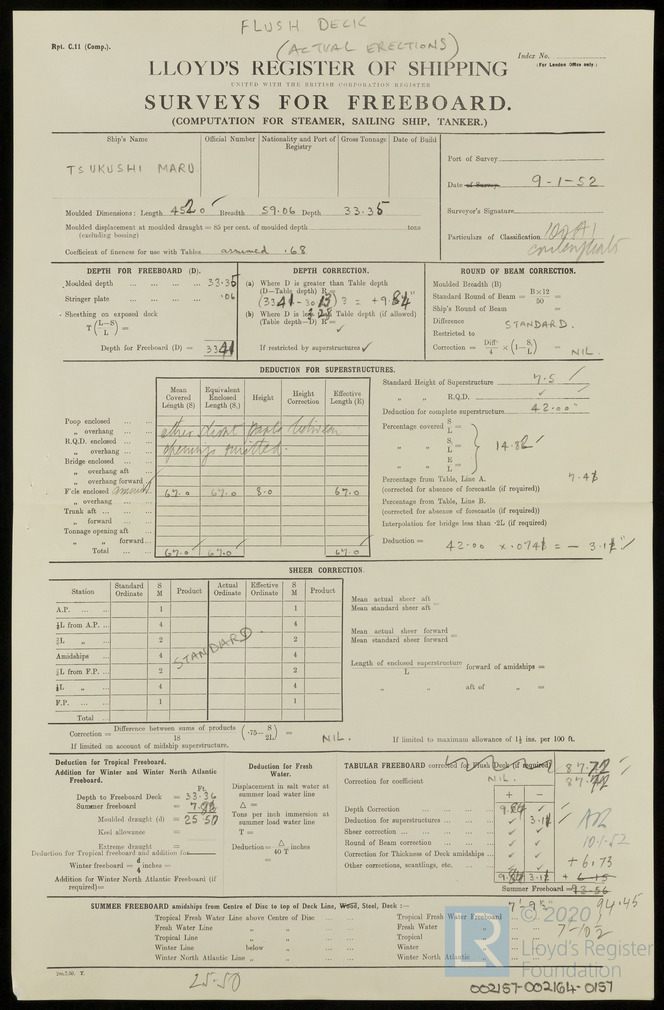 FLUSH DECK
(ACTUAL ERECTIONS)
Rpt. C.11 (Comp.).
Index No.
(For London Office only.)
LLOYD'S REGISTER OF SHIPPING
UNITED WITH THE BRITISH CORPORATION REGISTER
SURVEYS FOR FREEBOARD.
(COMPUTATION FOR STEAMER, SAILING SHIP, TANKER.)
Ship's Name Official Number Nationality and Port of Registry Gross Tonnage Date of Build
TSUKUSHI MARU
Port of Survey
Date of Survey 9-1-52
Surveyor's Signature
Particulars of Classification 100A1
Moulded Dimensions: Length 452.0 Breadth 59.06 Depth 33.35
Moulded displacement at moulded draught = 85 per cent. of moulded depth tons
(excluding bossing)
Coefficient of fineness for use with Tables assumed .68
DEPTH FOR FREEBOARD (D).
Moulded depth ... 33.35
Stringer plate ... .06
Sheathing on exposed deck
T(L-S/L) =
Depth for Freeboard (D) = 33.41
DEPTH CORRECTION.
(a) Where D is greater than Table depth
(D—Table depth) R =
(33.41 - 30.13) 3 = +9.84"
(b) Where D is less than Table depth (if allowed)
(Table depth—D) R =
If restricted by superstructures ✓
ROUND OF BEAM CORRECTION.
Moulded Breadth (B)
Standard Round of Beam = B×12/50 =
Ship's Round of Beam =
Difference STANDARD.
Restricted to
Correction = Diff/4 × (1-S₁/L) = NIL.
DEDUCTION FOR SUPERSTRUCTURES.
Mean Covered Length (S) Equivalent Enclosed Length (S₁) Height Height Correction Effective Length (E)
Poop enclosed
„ overhang
R.Q.D. enclosed
„ overhang
Bridge enclosed
„ overhang aft
„ overhang forward
F'cle enclosed 67.0 67.0 8.0 67.0
„ overhang
Trunk aft
„ forward
Tonnage opening aft
„ „ forward
Total 67.0 67.0 67.0
between
openings omitted.
Standard Height of Superstructure 7.5
„ „ R.Q.D.
Deduction for complete superstructure 42.00"
Percentage covered S/L =
„ „ S₁/L = 14.82
„ „ E/L =
Percentage from Table, Line A. 7.41
(corrected for absence of forecastle (if required))
Percentage from Table, Line B.
(corrected for absence of forecastle (if required))
Interpolation for bridge less than ·2L (if required)
Deduction = 42.00 × .0741 = - 3.11"
SHEER CORRECTION.
Station Standard Ordinate S M Product Actual Ordinate Effective Ordinate S M Product
A.P. 1 1
⅙L from A.P. 4 4
⅓L „ 2 2
Amidships 4 4
⅓L from F.P. 2 2
⅙L „ 4 4
F.P. 1 1
Total
STANDARD.
Mean actual sheer aft
Mean standard sheer aft =
Mean actual sheer forward
Mean standard sheer forward =
Length of enclosed superstructure/L forward of amidships =
„ „ aft of „ =
Correction = Difference between sums of products/18 (·75 - S/2L) = NIL.
If limited on account of midship superstructure.
If limited to maximum allowance of 1½ ins. per 100 ft.
Deduction for Tropical Freeboard.
Addition for Winter and Winter North Atlantic Freeboard.
Ft.
Depth to Freeboard Deck = 33.36
Summer freeboard = 7.86
Moulded draught (d) = 25.50
Keel allowance =
Extreme draught =
Deduction for Tropical freeboard and addition for
Winter freeboard = d/4 inches =
Addition for Winter North Atlantic Freeboard (if required) =
Deduction for Fresh Water.
Displacement in salt water at summer load water line
Δ =
Tons per inch immersion at summer load water line
T =
Deduction = Δ/40 T inches
=
TABULAR FREEBOARD corrected for Flush Deck (if required) 87.72
Correction for coefficient NIL. 87.72
+ −
Depth Correction 9.84
Deduction for superstructures 3.11
Sheer correction
Round of Beam correction
Correction for Thickness of Deck amidships
Other corrections, scantlings, etc.
9.84 3.11 + 6.73
Summer Freeboard = 94.45
10.1.52
SUMMER FREEBOARD amidships from Centre of Disc to top of Deck Line, Wood, Steel, Deck :—
Tropical Fresh Water Line above Centre of Disc
Fresh Water Line „ „
Tropical Line „ „
Winter Line below „
Winter North Atlantic Line „ „
Tropical Fresh Water Freeboard
Fresh Water „
Tropical „
Winter „
Winter North Atlantic „
25.50
© 2020
LR
Lloyd's Register
Foundation
002157-002164-0157